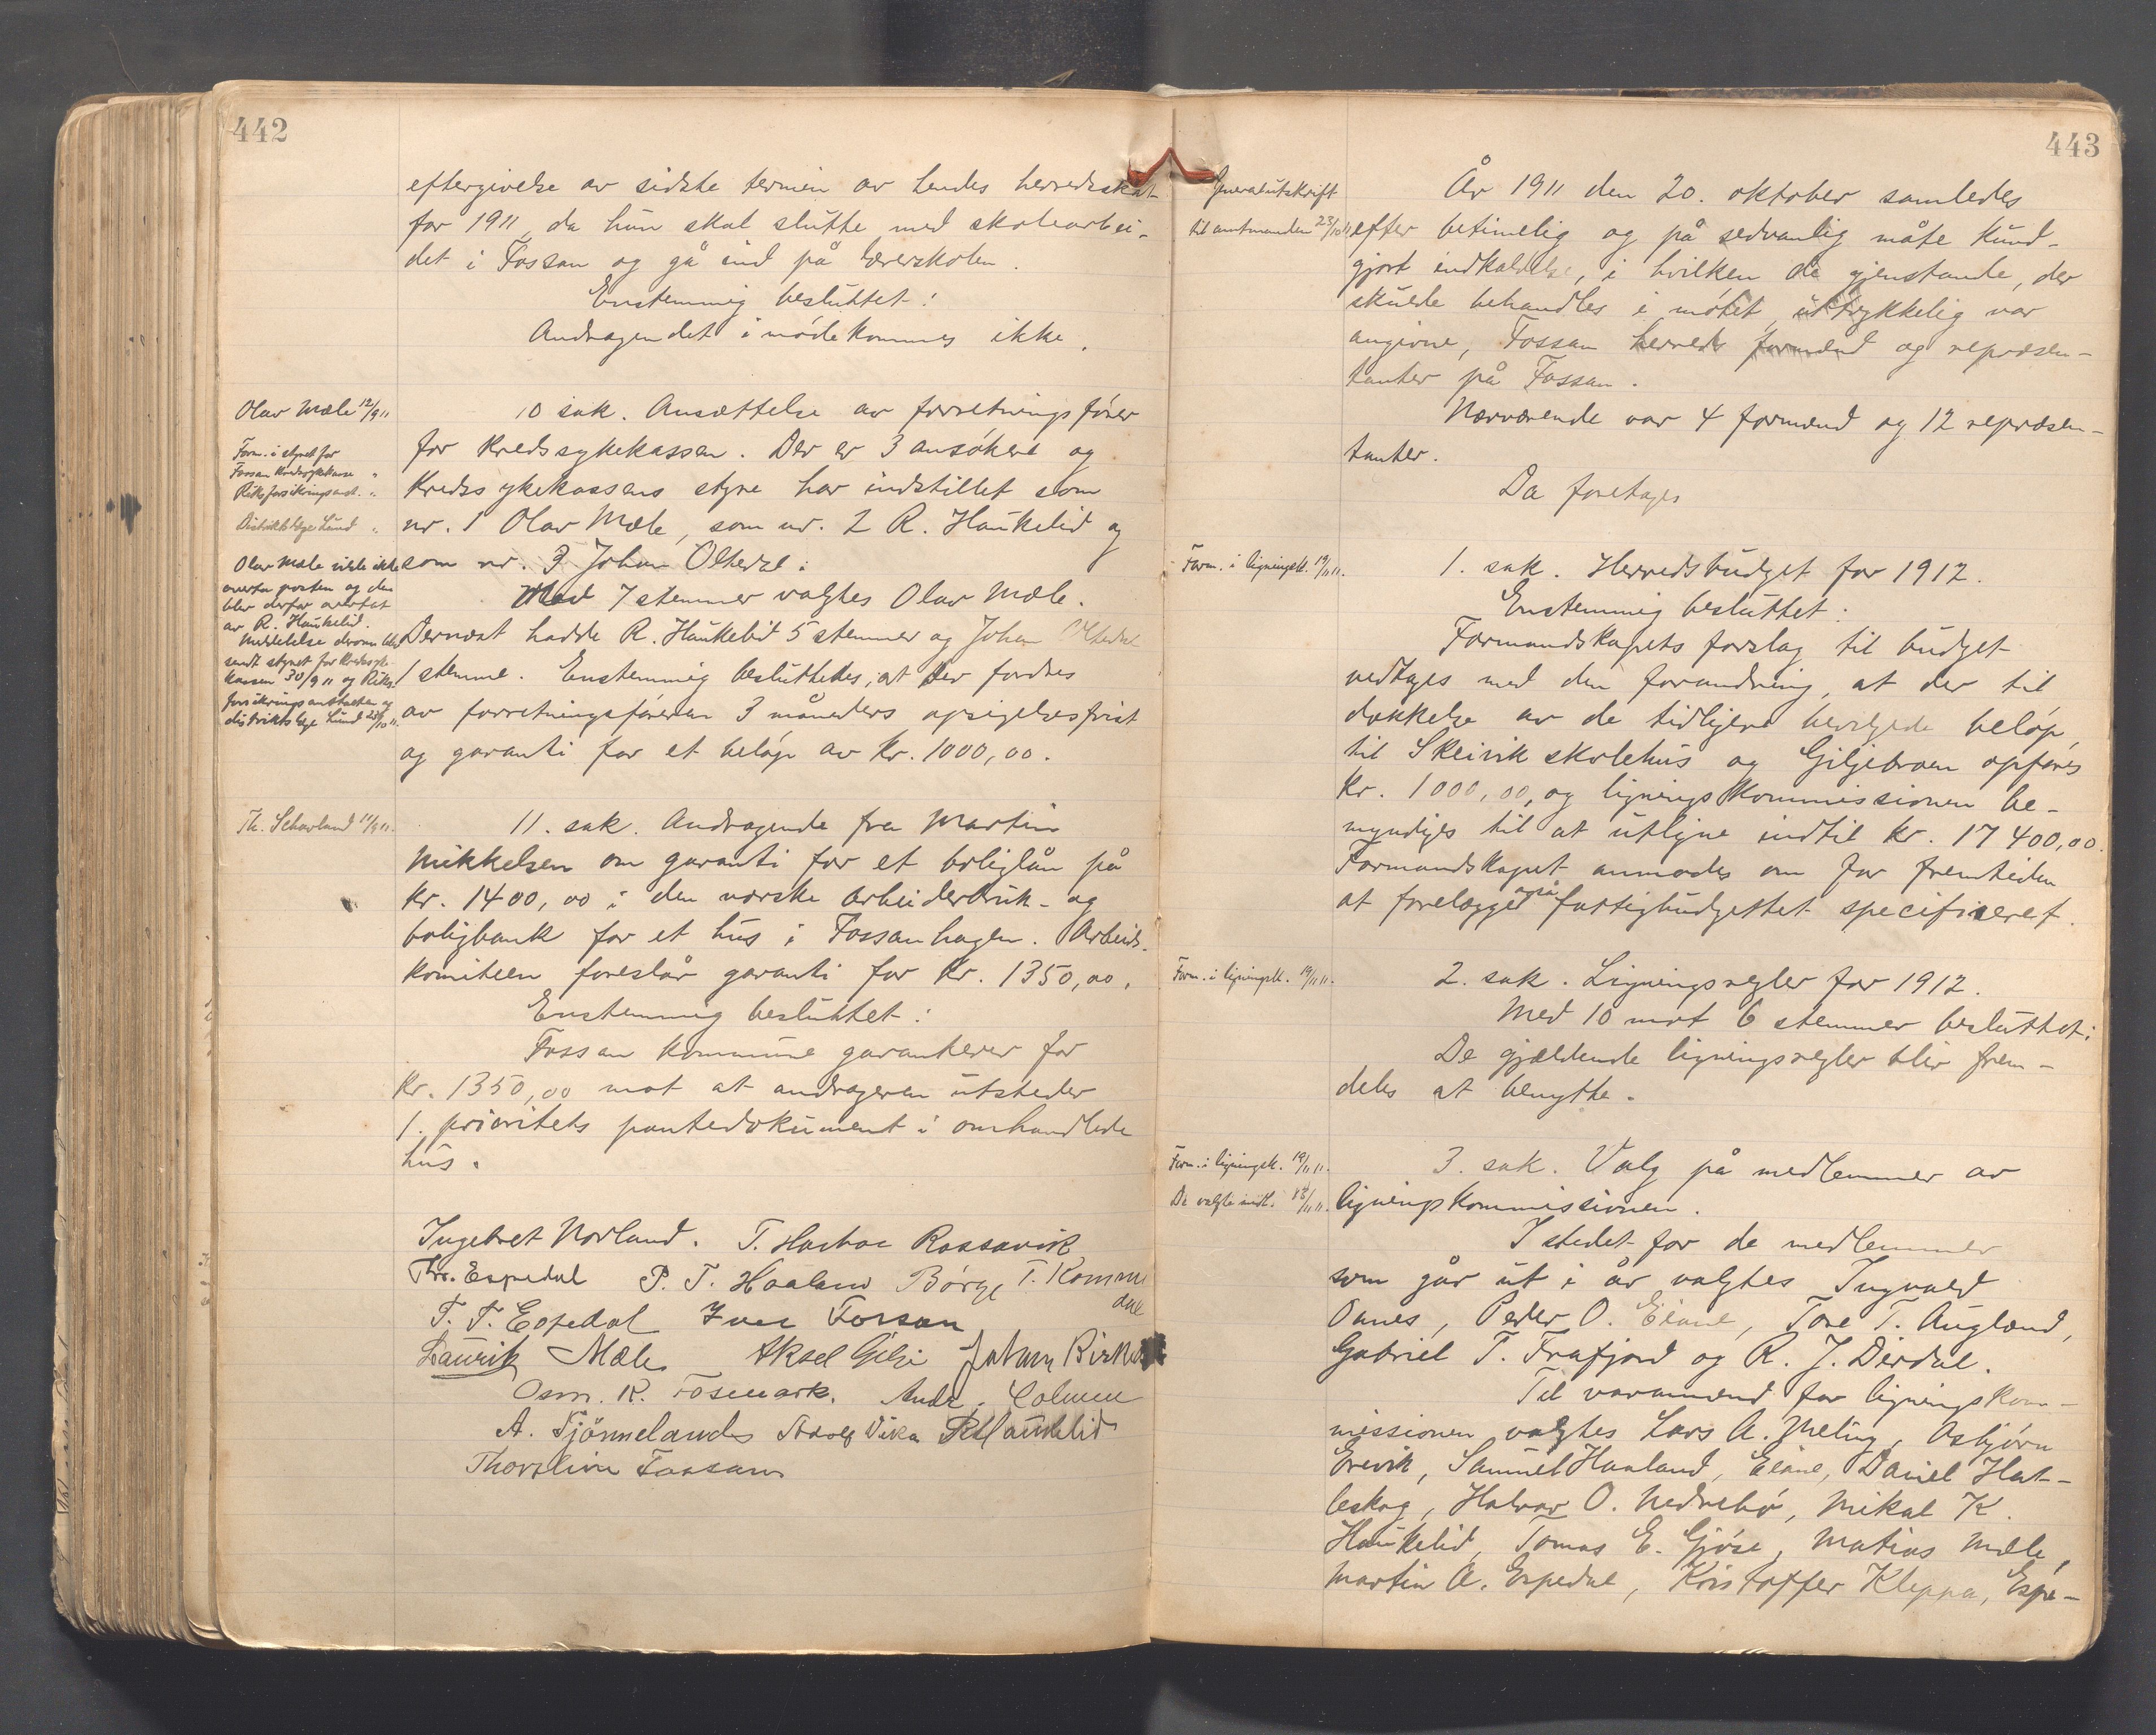 442
eftergivelse av sidste termin av hendes herredsskat
for 1911, da hun skal slutte med skolearbei-
det i Fossan og gå ind på lærerskolen.
Enstemmig besluttet:
Andragendet imødekommes ikke.
Olav Mæle 12/9 11
Form. i styret for
Fossan kredssykekasse "
Riksforsikringsanst. "
Distriktslæge Lund "
10 sak. Ansættelse av forretningsfører
for kredssykekassen. Der er 3 ansøkere og
kredssykekassens styre har indstillet som
nr. 1 Olav Mæle, som nr. 2 R. Haukelid og
som nr. 3 Johan Oltedal.
Olav Mæle vilde ikke
overta posten og den
blev derfor overtat
av R. Haukelid.
Meddelelse derom blev
sendt styret for kredssyke-
kassen 30/9 11 og Riks-
forsikringsanstalten og
distriktslæge Lund 23/10 11.
Med 7 stemmer valgtes Olav Mæle.
Dernæst hadde R. Haukelid 5 stemmer og Johan Oltedal
1 stemme. Enstemmig besluttedes, at der fordres
av forretningsføreren 3 måneders opsigelsesfrist
og garanti for et beløp av kr. 1000,00.
Th. Schavland 11/9 11.
11. sak. Andragende fra Martin
Mikkelsen om garanti for et boliglån på
kr. 1400,00 i den norske arbeiderbruk- og
boligbank for et hus i Fossanhagen. Arbeids-
komiteen foreslår garanti for kr. 1350,00.
Enstemmig besluttet:
Fossan kommune garanterer for
kr. 1350,00 mot at andrageren utsteder
1. prioritets pantedokument i omhandlede
hus.
Ingebret Norland. T. Rossavik
Espedal P. T. Haaland Børge T. Kommedal
T. T. Espedal Iver Fossan
Laurits Mæle Aksel Gilje Johan
Osm. R. Fosmark. Andr.
A. Tjørmelands Adolf Vika R. Haukelid
Fossan
443
Generalutskrift
til amtmanden 23/10 11
År 1911 den 20. oktober samledes
efter betimelig og på sedvanlig måte kund-
gjort indkaldelse, i hvilken de gjenstande, der
skulde behandles i møtet, uttrykkelig var
angivne, Fossan herreds formænd og repræsen-
tanter på Fossan.
Nærværende var 4 formænd og 12 repræsen-
tanter.
Da foretages
Form. i ligningsk. 19/11 11.
1. sak. Herredsbudget for 1912.
Enstemmig besluttet:
Formandskapets forslag til budget
vedtages med den forandring, at der til
dækkelse av de tidligere bevilgede beløp
til Skeivik skolehus og Giljebroen opføres
kr. 1000,00, og ligningskommissionen be-
myndiges til at utligne indtil kr. 17400,00.
Formandskapet anmodes om for fremtiden
at forelægge også fattigbudgettet specificeret.
Form. i ligningsk. 19/11 11.
2. sak. Ligningsregler for 1912.
Med 10 mot 6 stemmer besluttet:
De gjældende ligningsregler blir frem-
deles at benytte.
Form. i ligningsk. 19/11 11.
De valgte medl. 13/11 11.
3. sak. Valg på medlemmer av
ligningskommissionen.
I stedet for de medlemmer
som går ut i år valgtes Ingvald
Oanes, Peder O. Eiane, Tore T. Augland,
Gabriel T. Frafjord og R. J. Dirdal.
Til varamænd for ligningskom-
missionen valgtes Lars A. Meling, Asbjørn
Erevik, Samuel Haaland, Eiane, Daniel Hat-
leskog, Halvor O. Nedrebø, Mikal K.
Haukelid, Tomas E. Gjøse, Matias Mæle,
Martin A. Espedal, Kristoffer Kleppa, Espe-